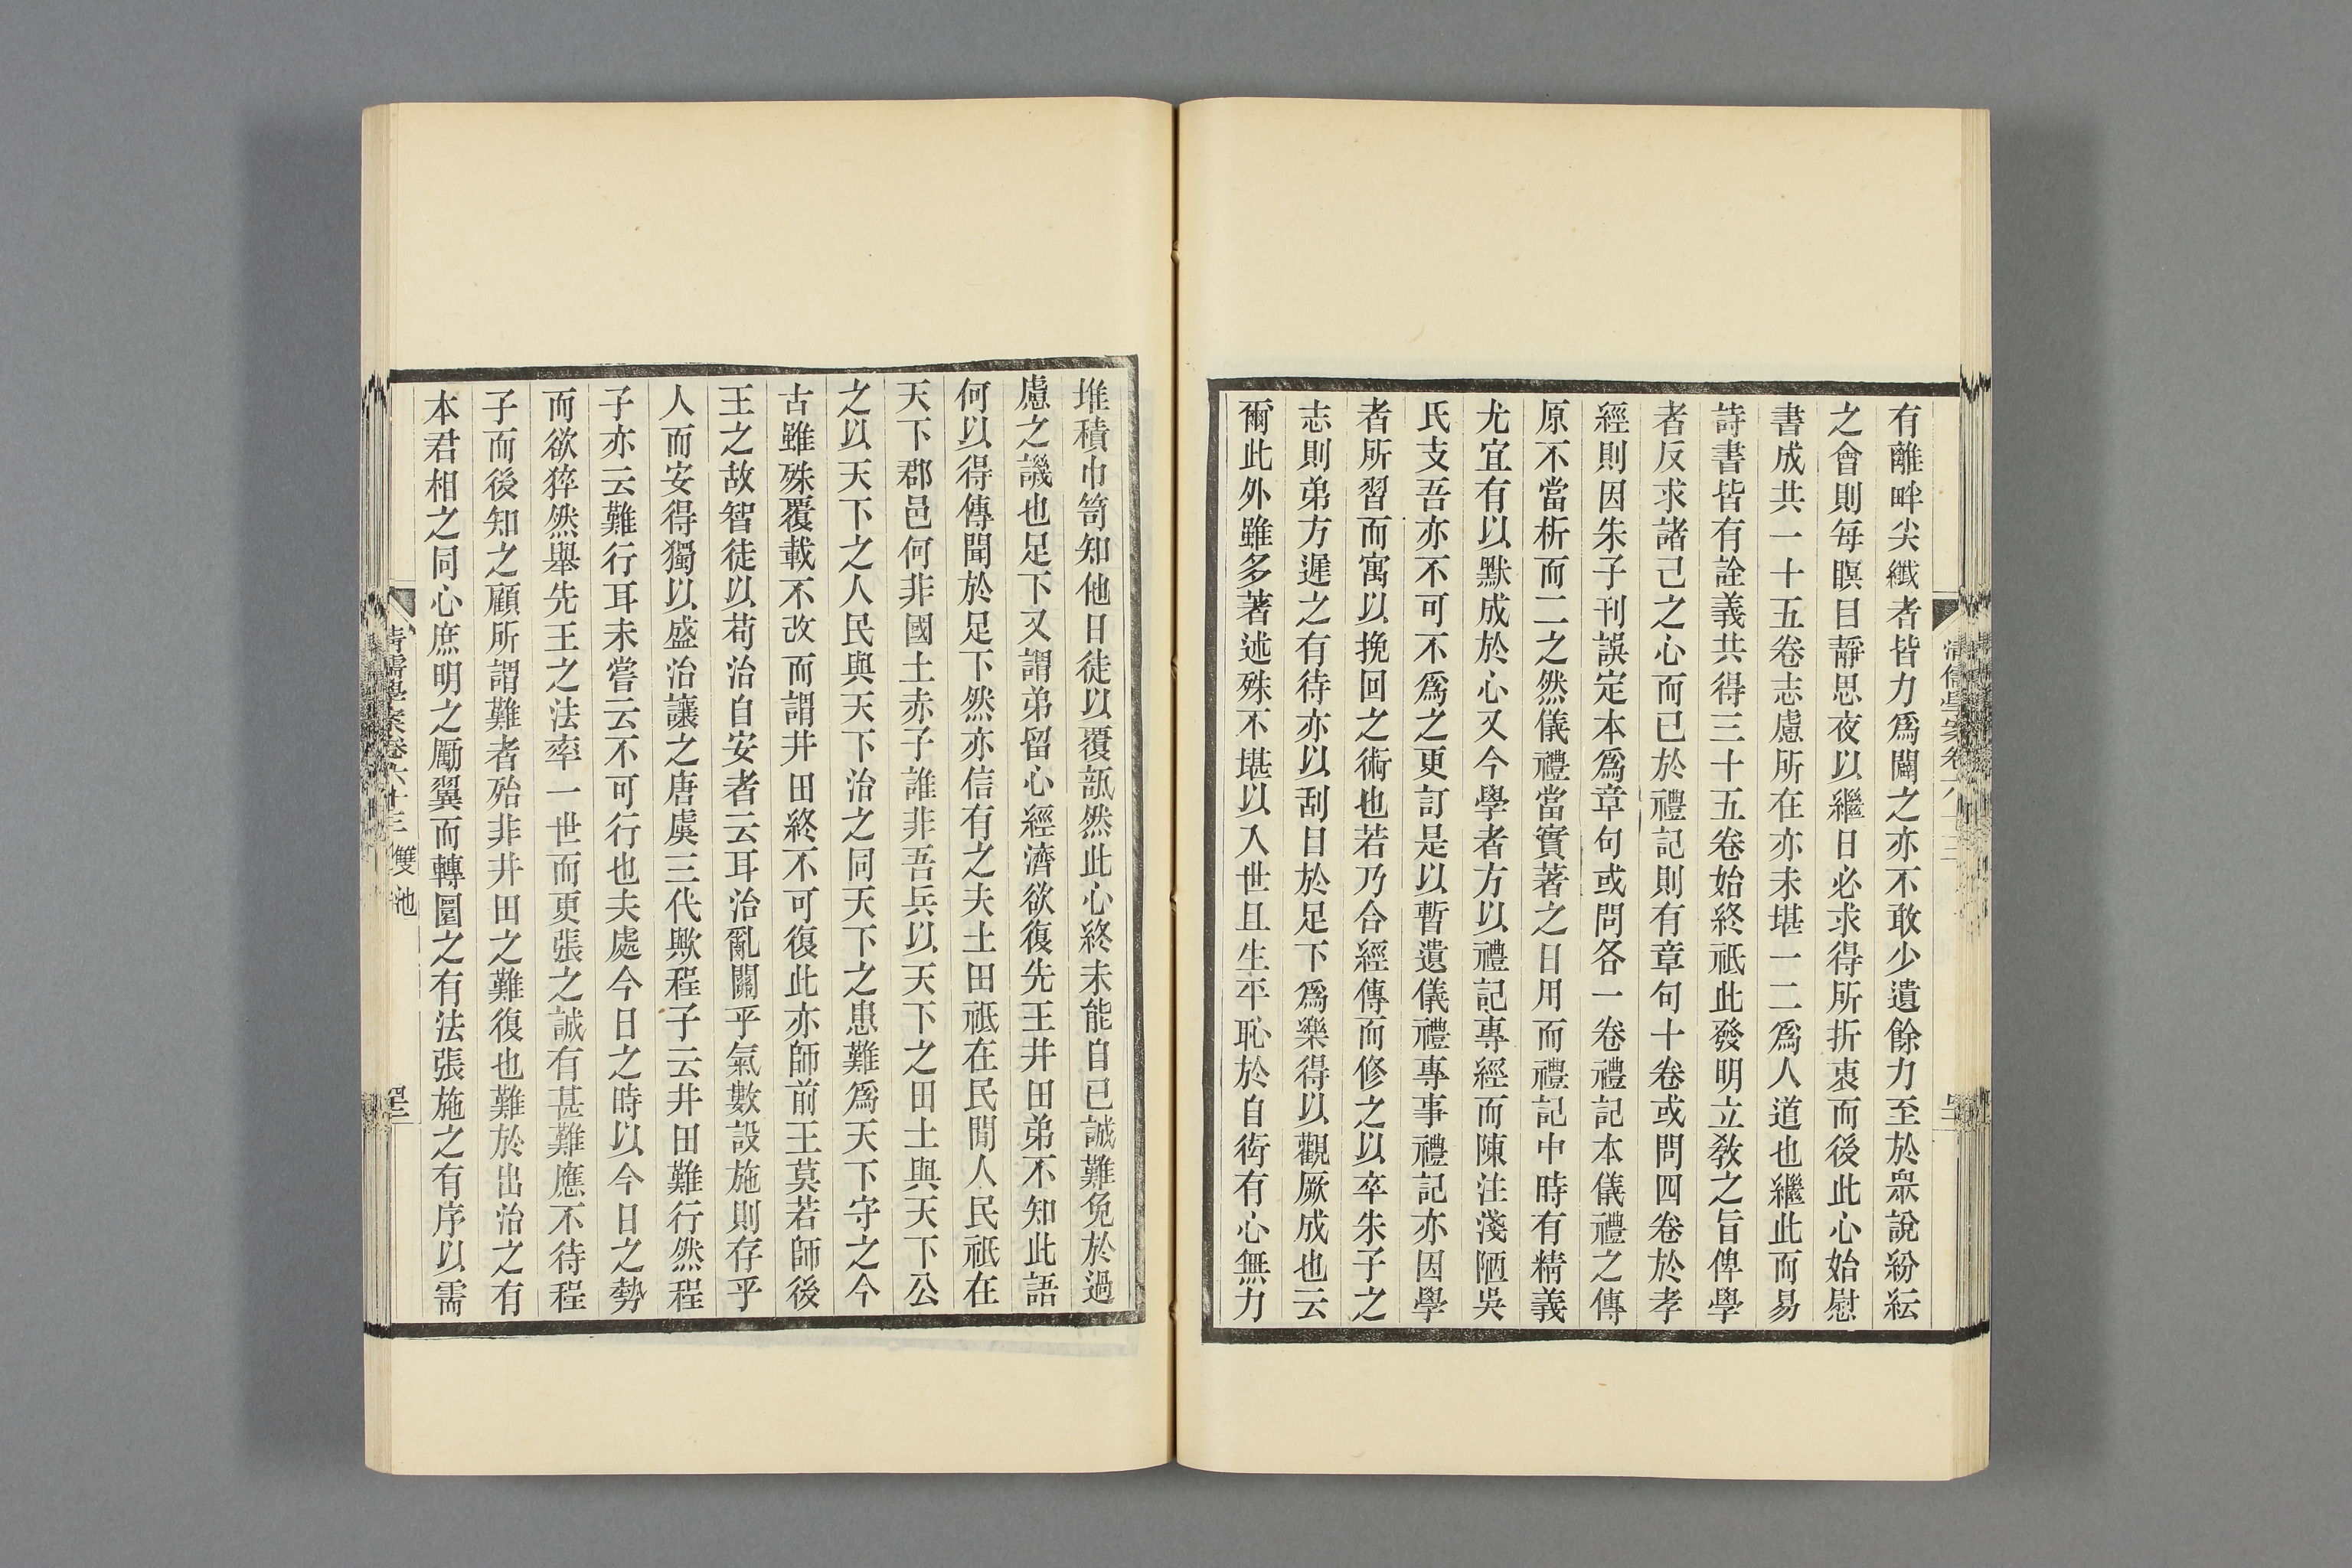 有離畔尖纖者皆力爲闢之亦不敢少遺餘力至於眾說紛紜
之會則每瞑目靜思夜以繼日必求得所折衷而後此心始慰
書成共一十五卷志慮所在亦未堪一二爲人道也繼此而易
詩書皆有詮義共得三十五卷始終祇此發明立敎之旨俾學
者反求諸己之心而已於禮記則有章句十卷或問四卷於孝
經則因朱子刊誤定本爲章句或問各一卷禮記本儀禮之傳
原不當析而二之然儀禮當實著之日用而禮記中時有精義
尤宜有以默成於心又今學者方以禮記專經而陳注淺陋吳
氏支吾亦不可不爲之更訂是以暫遺儀禮專事禮記亦因學
者所習而寓以挽回之術也若乃合經傳而修之以卒朱子之
志則弟方遲之有待亦以刮目於足下爲樂得以觀厥成也云
爾此外雖多著述殊不堪以入世且生平恥於自衒有心無力
堆積巾笥知他日徒以覆瓿然此心終未能自已誠難免於過
慮之譏也足下又謂弟留心經濟欲復先王井田弟不知此語
何以得傳聞於足下然亦信有之夫土田祇在民閒人民祇在
天下郡邑何非國土赤子誰非吾兵以天下之田土與天下公
之以天下之人民與天下治之同天下之患難爲天下守之今
古雖殊覆載不改而謂井田終不可復此亦師前王莫若師後
王之故智徒以苟治自安者云耳治亂關乎氣數設施則存乎
人而安得獨以盛治讓之唐虞三代歟程子云井田難行然程
子亦云難行耳未嘗云不可行也夫處今日之時以今日之勢
而欲猝然舉先王之法率一世而更張之誠有甚難應不待程
子而後知之顧所謂難者殆非井田之難復也難於出治之有
本君相之同心庶明之勵翼而轉圜之有法張施之有序以需
清儒學案卷六十三 雙池